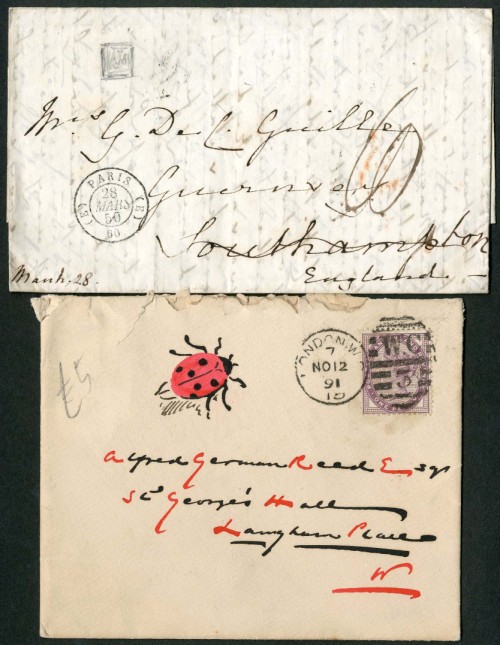 Mrs G. De L. Guille
Guernsey
Southampton
England
PARIS (E)
28
MARS
50
(E)
60
March. 28.
LONDON.W
7
NO 12
91
W.C
£5
Alfred German Reed Esqr
St George's Hall
Langham Place
W